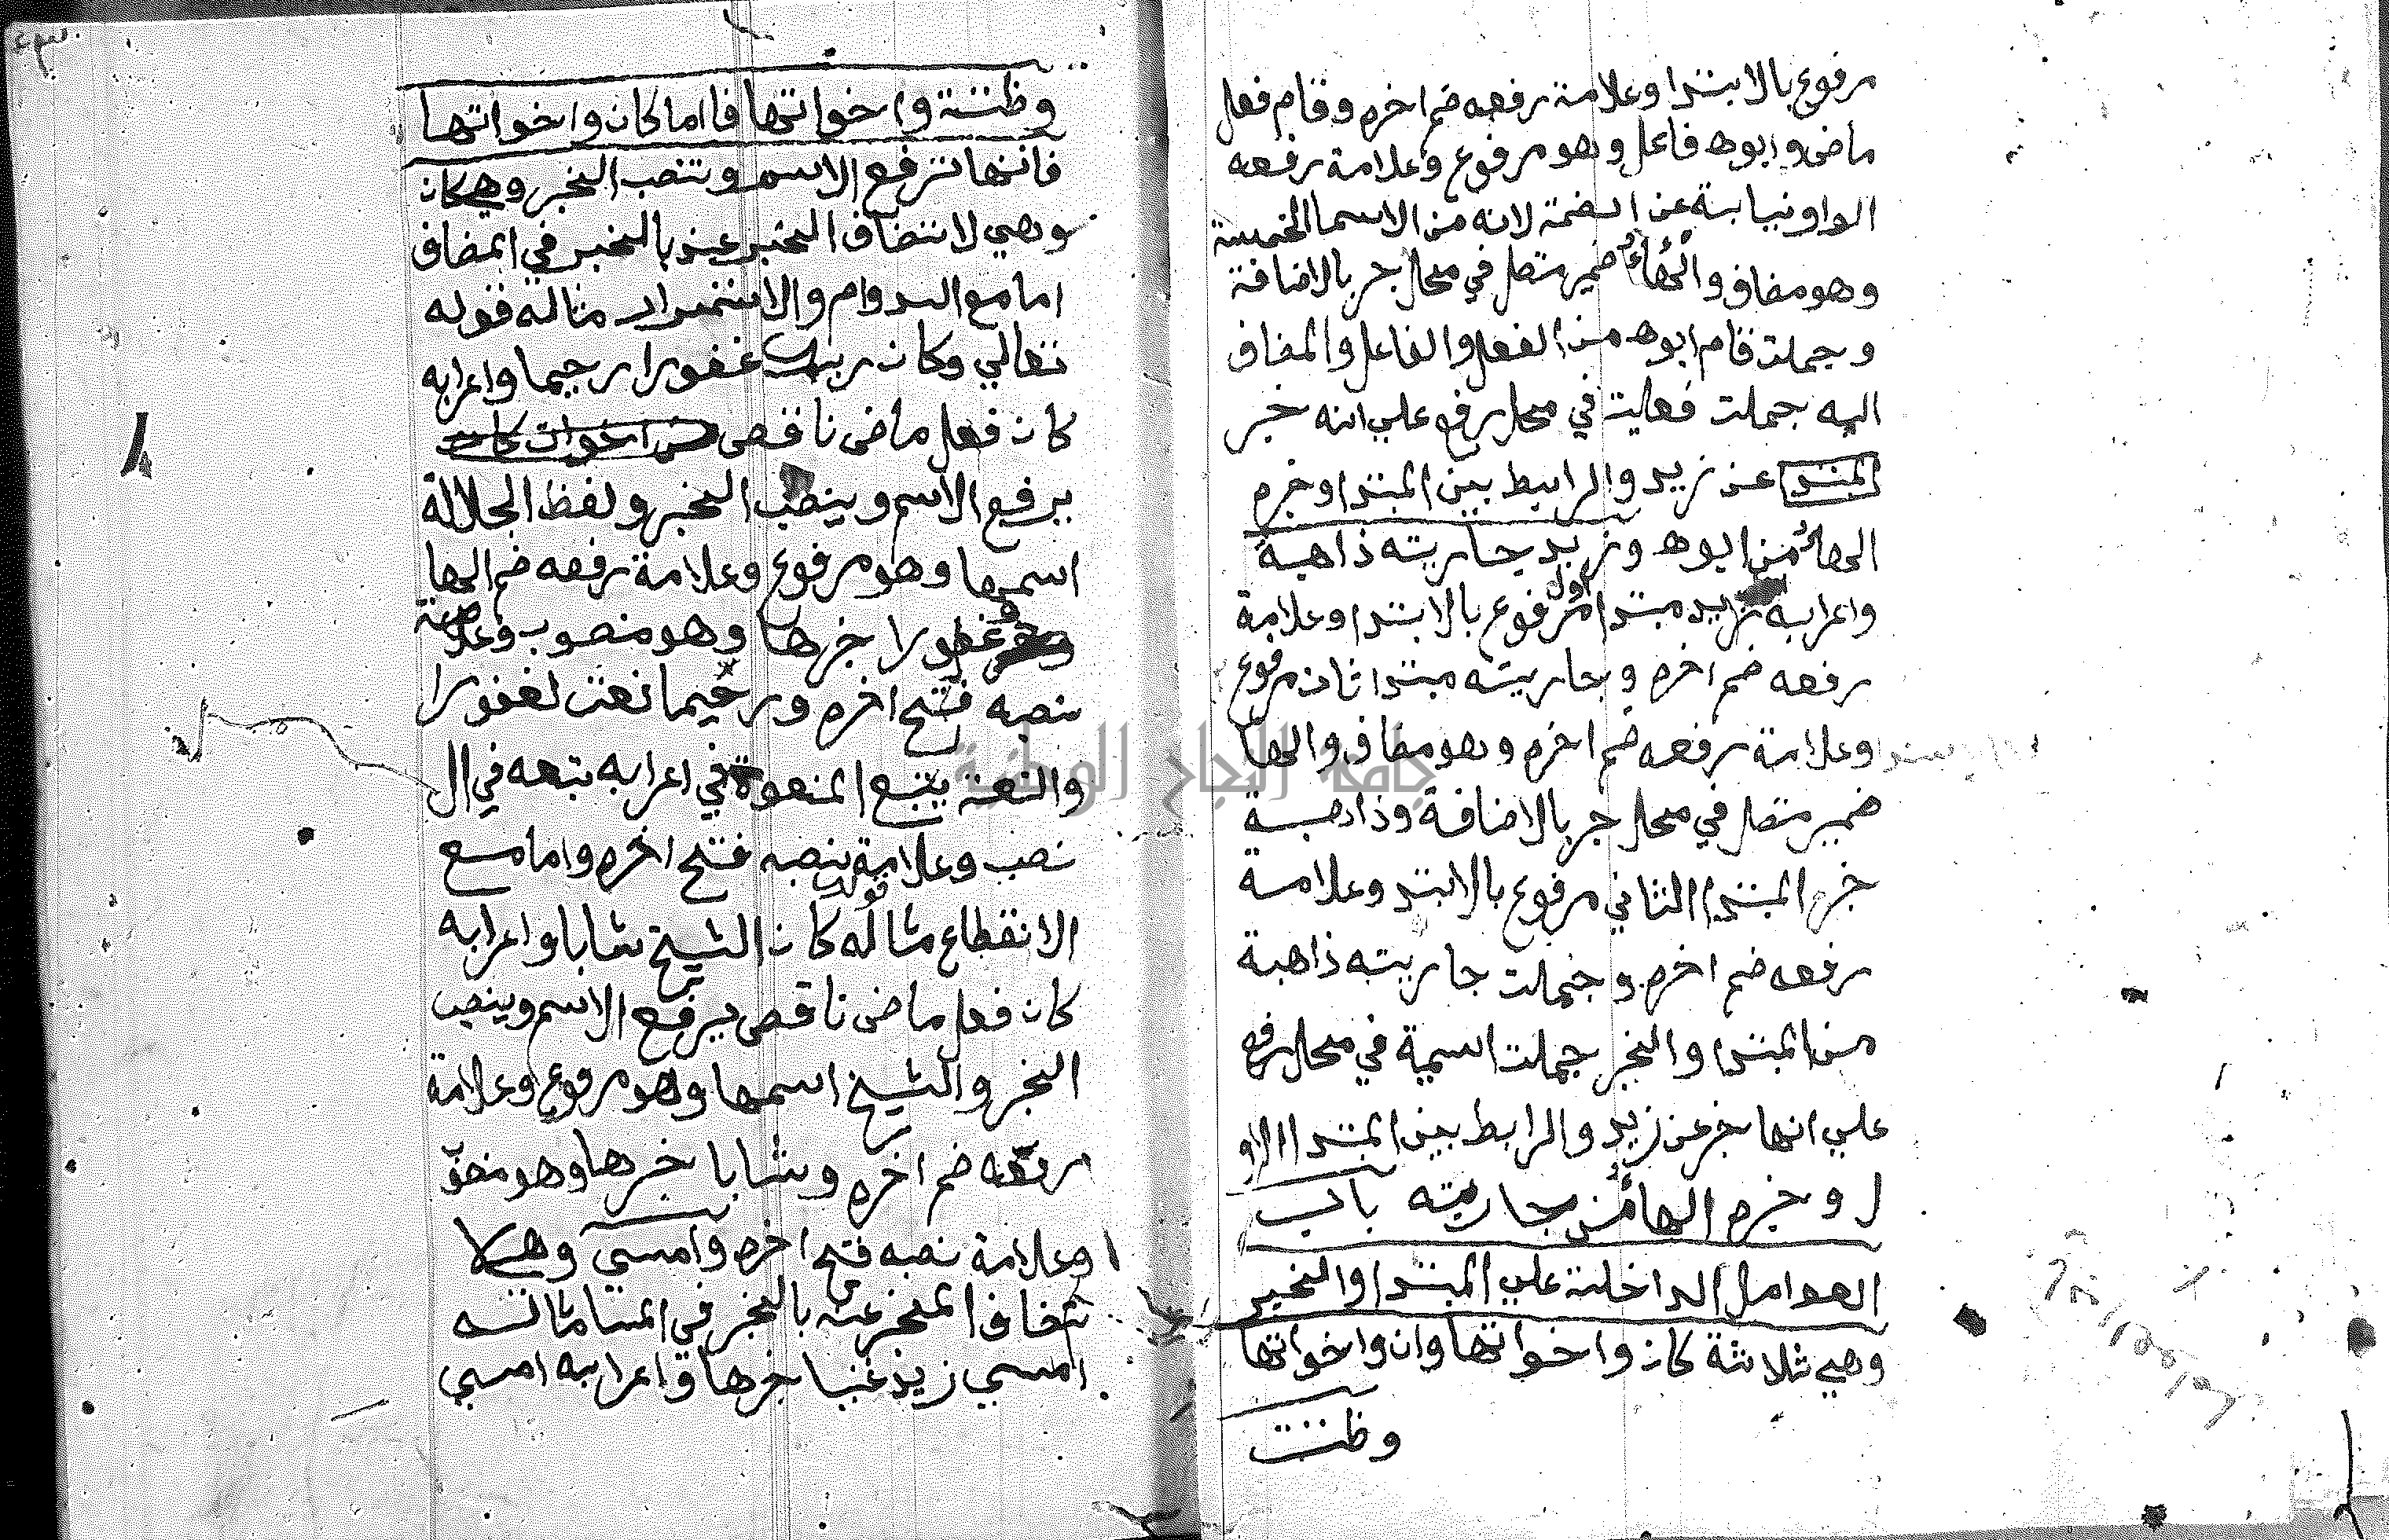 مرفوع بالابتدا وعلامة رفعه ضم اخره وقام فعل
ماضي وابوه فاعل وهو مرفوع وعلامة رفعه
الواو نيابة عن الضمة لانه من الاسما الخمسة
وهو مضاف والهاء ضمير متصل في محل جر بالاضافة
وجملت قام ابوه من الفعل والفاعل والمضاف
اليه جملت فعليت في محل رفع علي انه خبر
المبتدا عن زيد والرابط بين المبتدا وخبره
الهاء من ابوه وزيد جاريته ذاهبة
واعرابه زيد مبتدا اول مرفوع بالابتدا وعلامة
رفعه ضم اخره وجاريته مبتدا ثان مرفوع
وعلامة رفعه ضم اخره وهو مضاف والها
ضمير متصل في محل جر بالاضافة وذاهبة
خبر المبتدا الثاني مرفوع بالابتد وعلامة
رفعه ضم اخره وجملت جاريته ذاهبة
من المبتدا والخبر جملت اسمية في محل رفع
علي انها خبر عن زيد والرابط بين المبتدا الاو
ل وخبره الهاء من جاريته باب
العوامل الداخلت علي المبتدا والخبر
وهي ثلاثة كان واخواتها وان واخواتها
وظننت
وظننة واخواتها فاما كان واخواتها
فانها ترفع الاسم وتنصب الخبر وهي كان
وهي لاتضاف المخبر عنه بالخبر في المضاف
اما مع الدوام والاستمرار مثاله قوله
تعالي وكان ربك غفورا رحيما واعرابه
كان فعل ماضي ناقص من اخوات كان
يرفع الاسم وينصب الخبر ولفظ الجلالة
اسمها وهو مرفوع وعلامة رفعه ضم الها
غفورا خبرها وهو منصوب وعلامة
نصبه فتح اخره ورحيما نعت لغفورا
والنعت يتبع المنعوة في اعرابه تبعه في ال
نصب وعلامة نصبه فتح اخره واما مع
الانقطاع مثاله قولك كان الشيخ شابا واعرابه
كان فعل ماضي ناقص يرفع الاسم وينصب
الخبر والشيخ اسمها وهو مرفوع وعلامة
رفعه ضم اخره وشابا خبرها وهو منصو
وعلامة نصبه فتح اخره وامسي وهي لا
تضاف المخبر عنه بالخبر في المسا مثاله
امسي زيد غنيا خبرها واعرابه امسي
جامعة النجاح الوطنية